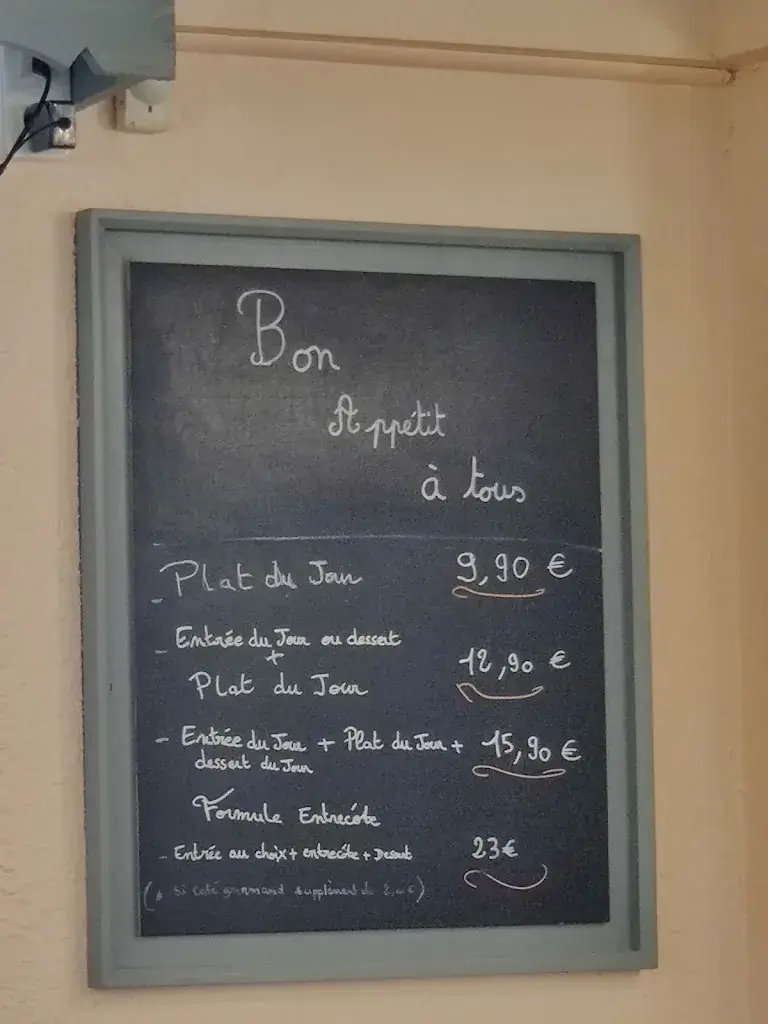 Bon
Appétit
à tous
- Plat du Jour 9,90 €
- Entrée du Jour ou dessert
+
Plat du Jour 12,90 €
- Entrée du Jour + Plat du Jour + 15,90 €
dessert du Jour
Formule Entrecôte
- Entrée au choix + entrecôte + Dessert 23€
(* Si café gourmand supplément de